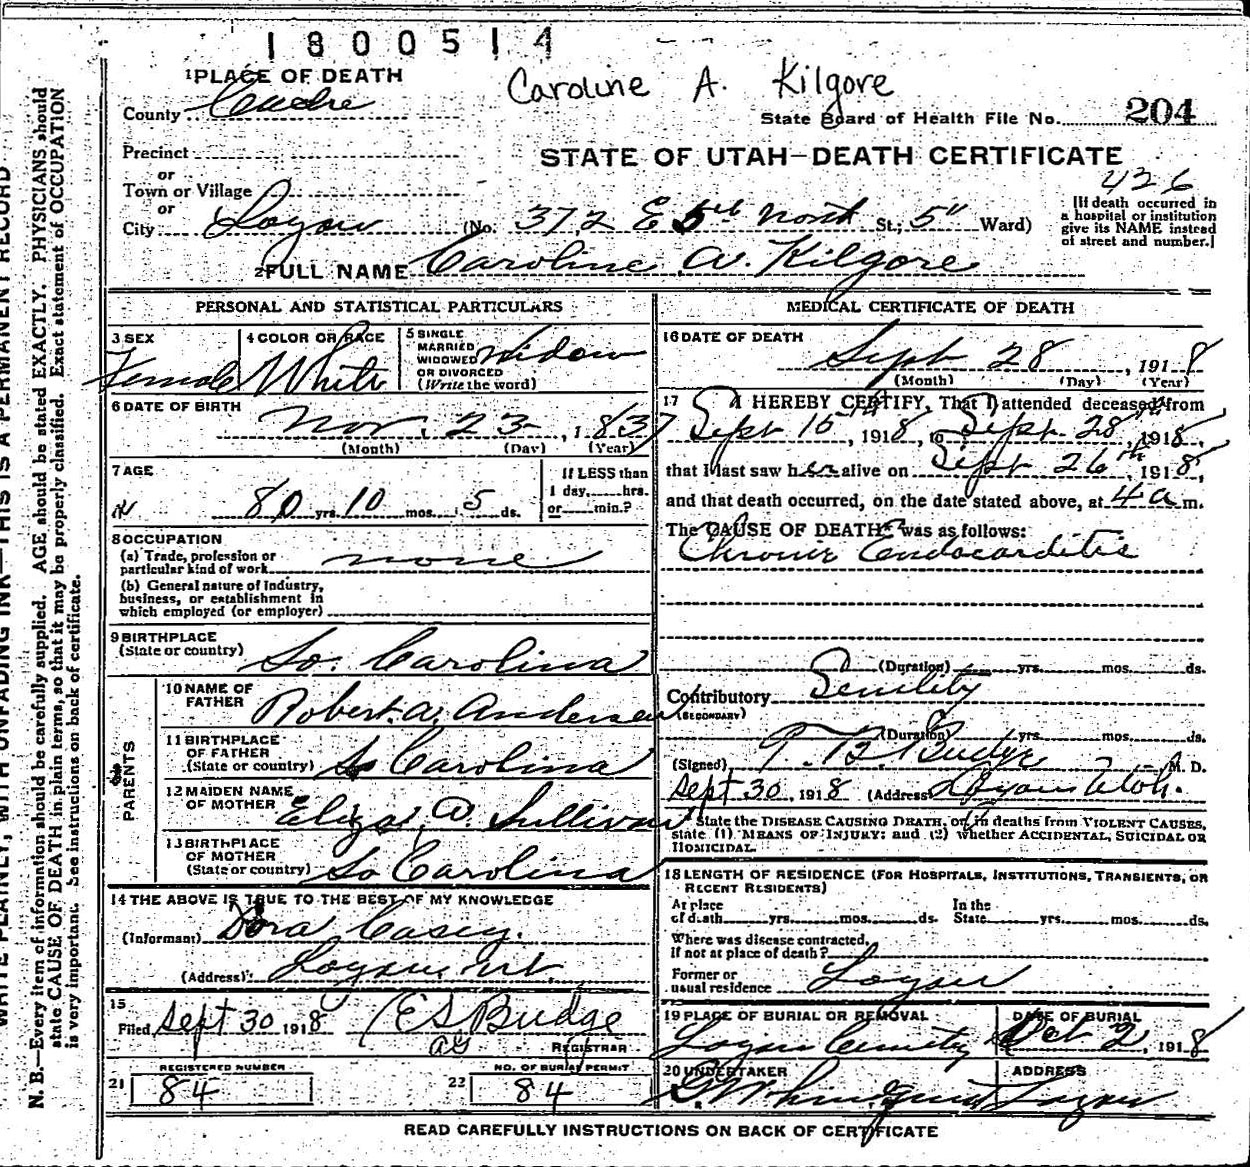 1800514
Caroline A. Kilgore
1 PLACE OF DEATH
County Cache
State Board of Health File No. 204
Precinct
or
STATE OF UTAH—DEATH CERTIFICATE
Town or Village
or
426
City Logan (No. 372 E 5th North St.; 5" Ward)
[If death occurred in
a hospital or institution
give its NAME instead
of street and number.]
2 FULL NAME Caroline A. Kilgore
PERSONAL AND STATISTICAL PARTICULARS
3 SEX
Female
4 COLOR OR RACE
White
5 SINGLE
MARRIED
WIDOWED
OR DIVORCED
(Write the word)
Widow
6 DATE OF BIRTH
Nov. 23, 1837
(Month) (Day) (Year)
7 AGE
80 yrs. 10 mos. 5 ds.
If LESS than
1 day, hrs.
or min.?
8 OCCUPATION
(a) Trade, profession or
particular kind of work none
(b) General nature of Industry,
business, or establishment in
which employed (or employer)
9 BIRTHPLACE
(State or country) So. Carolina
PARENTS
10 NAME OF
FATHER Robert A. Andersen
11 BIRTHPLACE
OF FATHER
(State or country) So Carolina
12 MAIDEN NAME
OF MOTHER Eliza A. Sullivan
13 BIRTHPLACE
OF MOTHER
(State or country) So Carolina
14 THE ABOVE IS TRUE TO THE BEST OF MY KNOWLEDGE
(Informant) Dora Casey.
(Address) Logan, Ut.
15
Filed Sept 30 1918 E S Budge
REGISTRAR
REGISTERED NUMBER
21 84
NO. OF BURIAL PERMIT
22 84
MEDICAL CERTIFICATE OF DEATH
16 DATE OF DEATH
Sept 28, 1918
(Month) (Day) (Year)
17 I HEREBY CERTIFY, That I attended deceased from
Sept 15th, 1918, to Sept 28th, 1918,
that I last saw her alive on Sept 26th 1918,
and that death occurred, on the date stated above, at 4 a m.
The CAUSE OF DEATH was as follows:
Chronic Endocarditis
(Duration) yrs. mos. ds.
Contributory Senility
(SECONDARY)
(Duration) yrs. mos. ds.
(Signed) T. B. Budge M. D.
Sept 30, 1918 (Address) Logan Utah.
State the DISEASE CAUSING DEATH, or, in deaths from VIOLENT CAUSES,
state (1) MEANS OF INJURY; and (2) whether ACCIDENTAL, SUICIDAL OR
HOMICIDAL.
18 LENGTH OF RESIDENCE (FOR HOSPITALS, INSTITUTIONS, TRANSIENTS, OR
RECENT RESIDENTS)
At place
of death yrs. mos. ds.
In the
State yrs. mos. ds.
Where was disease contracted,
if not at place of death?
Former or
usual residence Logan
19 PLACE OF BURIAL OR REMOVAL
Logan Cemetery
DATE OF BURIAL
Oct 2, 1918
20 UNDERTAKER
ADDRESS
Logan
READ CAREFULLY INSTRUCTIONS ON BACK OF CERTIFICATE
WRITE PLAINLY, WITH UNFADING INK—THIS IS A PERMANENT RECORD
N. B.—Every item of information should be carefully supplied. AGE should be stated EXACTLY. PHYSICIANS should
state CAUSE OF DEATH in plain terms, so that it may be properly classified. Exact statement of OCCUPATION
is very important. See instructions on back of certificate.